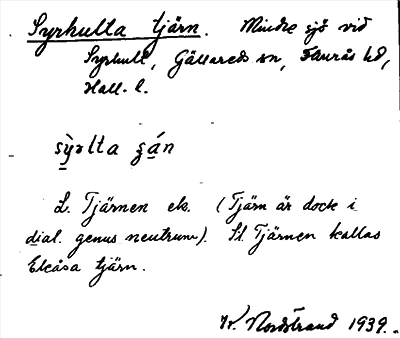 Syrhulta tjärn. Mindre sjö vid
Syrhult, Gällareds sn, Faurås hd,
Hall. l.
sỳrlta ʒán
L. Tjärnen ek. (Tjärn är dock i
dial. genus neutrum). St. Tjärnen kallas
Ekåsa tjärn.
Iv. Nordstrand 1939.